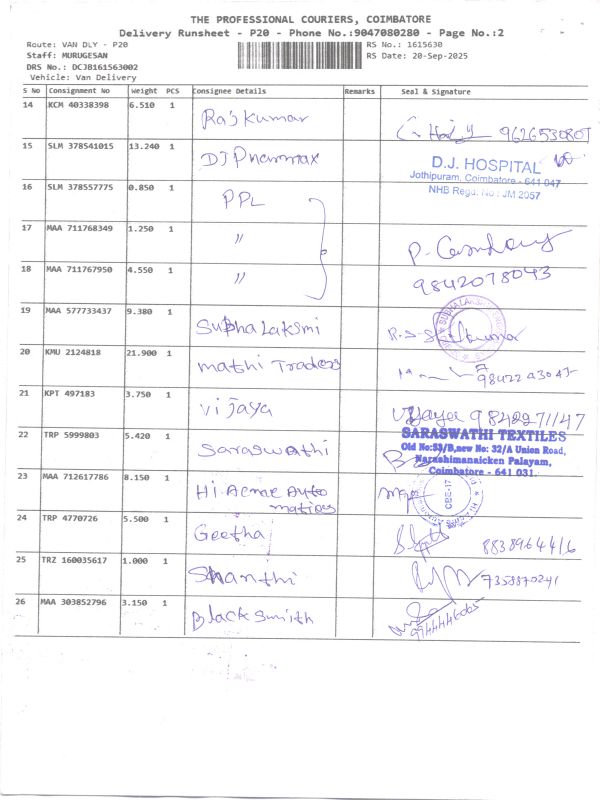 THE PROFESSIONAL COURIERS, COIMBATORE
Delivery Runsheet - P20 - Phone No.:9047080280 - Page No.:2
Route: VAN DLY - P20
RS No.: 1615630
Staff: MURUGESAN
RS Date: 20-Sep-2025
DRS No.: DCJB161563002
Vehicle: Van Delivery
S No Consignment No Weight PCS Consignee Details Remarks Seal & Signature
14 KCM 40338398 6.510 1 Rajkumar 9626530801
15 SLM 378541015 13.240 1 DJ Pharmmax
D.J. HOSPITAL
Jothipuram, Coimbatore - 641 047
NHB Regd. No : JM 2057
16 SLM 378557775 0.850 1 PPL
17 MAA 711768349 1.250 1 "
18 MAA 711767950 4.550 1 " 9842078043
19 MAA 577733437 9.380 1 Subha Laksmi
20 KMU 2124818 21.900 1 Mathi Traders
21 KPT 497183 3.750 1 Vijaya Vijaya 9842271147
22 TRP 5999803 5.420 1 Saraswathi
SARASWATHI TEXTILES
Old No:53/B,new No: 32/A Union Road,
Narashimanaicken Palayam,
Coimbatore - 641 031.
23 MAA 712617786 8.150 1 Hi-Acme Auto
mations
CBE-17
24 TRP 4770726 5.500 1 Geetha 8838964416
25 TRZ 160035617 1.000 1 Shanthi 7358870241
26 MAA 303852796 3.150 1 Black Smith
9944446065